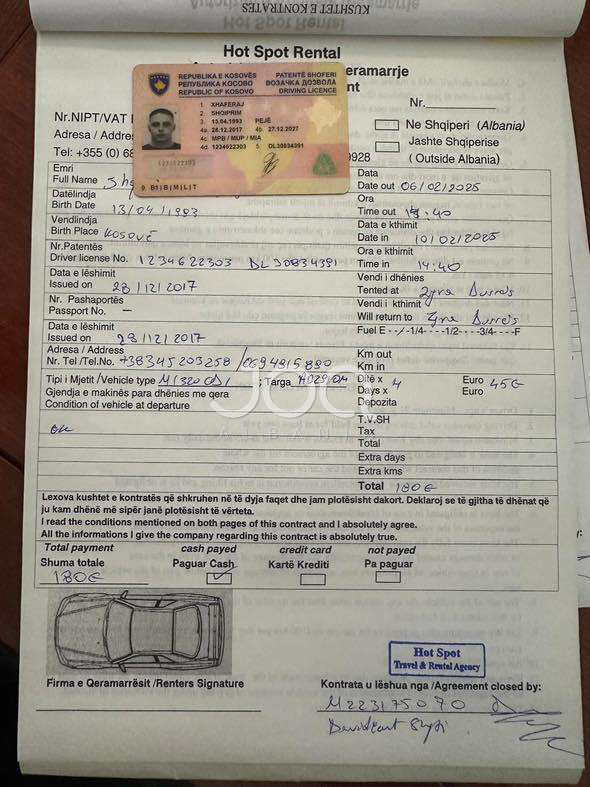 KUSHTET E KONTRATËS
Hot Spot Rental
qeramarrje
Nr.
Nr.NIPT/VAT
Adresa / Address
Tel: +355 (0) 68
0928
Ne Shqiperi (Albania)
Jashte Shqiperise
( Outside Albania)
REPUBLIKA E KOSOVËS
РЕПУБЛИКА КОСОВО
REPUBLIC OF KOSOVO
PATENTË SHOFERI
ВОЗАЧКА ДОЗВОЛА
DRIVING LICENCE
1. XHAFERAJ
2. SHQIPRIM
3. 13.04.1993 PEJË
4a. 28.12.2017 4b. 27.12.2027
4c. MPB / MUP / MIA
4d. 1234622303 5. DL30834391
1234622303
9. B1|B|M|LIT
Emri
Full Name
Datëlindja
Birth Date 13/04/1993
Vendlindja
Birth Place KOSOVË
Nr.Patentës
Driver license No. 1234622303 DL30834391
Data e lëshimit
Issued on 28/12/2017
Nr. Pashaportës
Passport No. –
Data e lëshimit
Issued on 28/12/2017
Adresa / Address
Nr. Tel /Tel.No. +38345203258 /0694815880
Tipi i Mjetit /Vehicle type ; Targa
Gjendja e makinës para dhënies me qera
Condition of vehicle at departure
OK
Data
Date out 06/02/2025
Ora
Time out :40
Data e kthimit
Date in 10/02/2025
Ora e kthimit
Time in 14:40
Vendi i dhënies
Tented at Zyra Durrës
Vendi i kthimit
Will return to Zyra Durrës
Fuel E --/-1/4----1/2----3/4----F
Km out
Km in
Ditë x 4 Euro 45€
Days x Euro
Depozita
T.V.SH
Tax
Total
Extra days
Extra kms
Total 180€
JOQ
ALBANIA
Lexova kushtet e kontratës që shkruhen në të dyja faqet dhe jam plotësisht dakort. Deklaroj se të gjitha të dhënat që
ju kam dhënë më sipër janë plotësisht të vërteta.
I read the conditions mentioned on both pages of this contract and I absolutely agree.
All the informations I give the company regarding this contract is absolutely true.
Total payment cash payed credit card not payed
Shuma totale Paguar Cash Kartë Krediti Pa paguar
180€
Hot Spot
Travel & Rental Agency
Firma e Qeramarrësit /Renters Signature
Kontrata u lëshua nga /Agreement closed by:
M22317507O